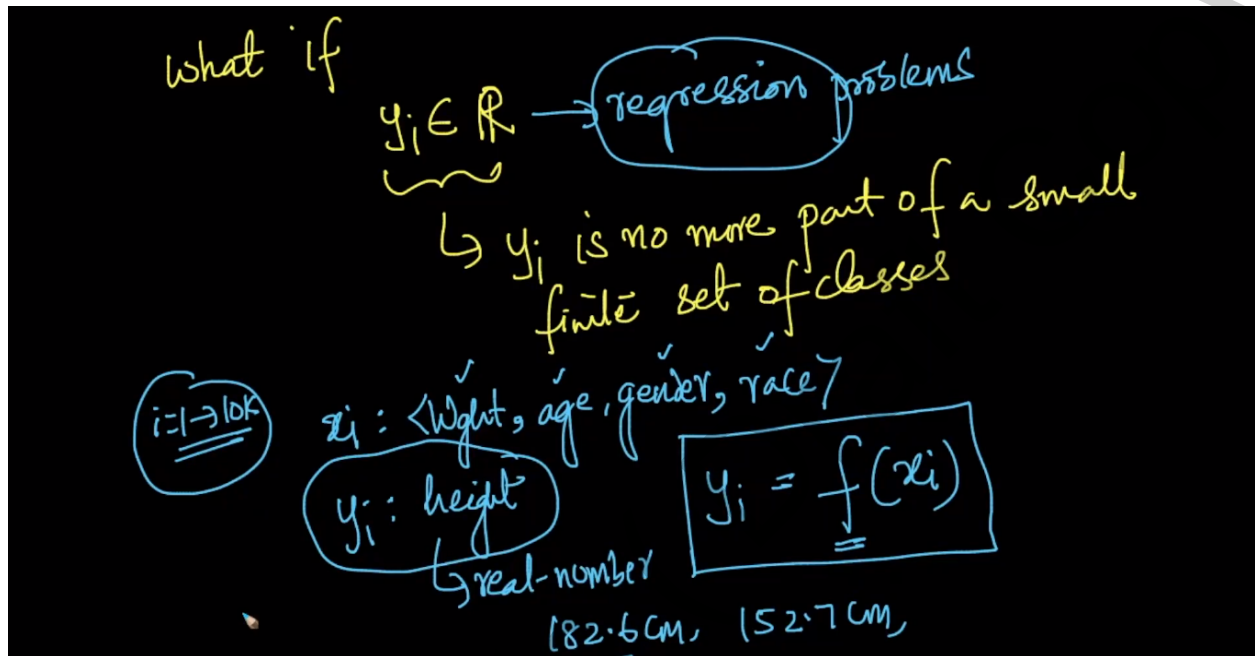 what if
yi ∈ ℝ → regression problems
↳ yi is no more part of a small
finite set of classes
i=1→10K
xi : <Wght, age, gender, race>
yi : height
yi = f(xi)
↳ real-number
182.6 cm, 152.7 cm,